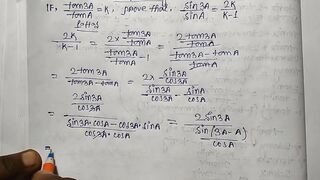 IF, tan3A/tanA = K, prove that, sin3A/sinA = 2K/K-1
2K/K-1 = 2× tan3A/tanA / tan3A/tanA - 1 = 2tan3A/tanA / tan3A-tanA/tanA
= 2tan3A / tan3A-tanA = 2× sin3A/cos3A / sin3A/cos3A - sinA/cosA
= 2 sin3A/cos3A / sin3A·cosA-cos3A·sinA/cos3A·cosA = 2 sin3A / sin(3A-A)/cosA
=